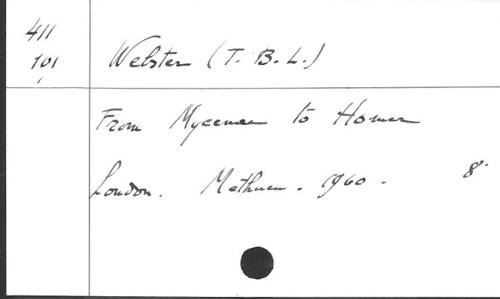 411
101
Webster (T. B. L.)
From Mycenae to Homer
London. Methuen. 1960. 8°